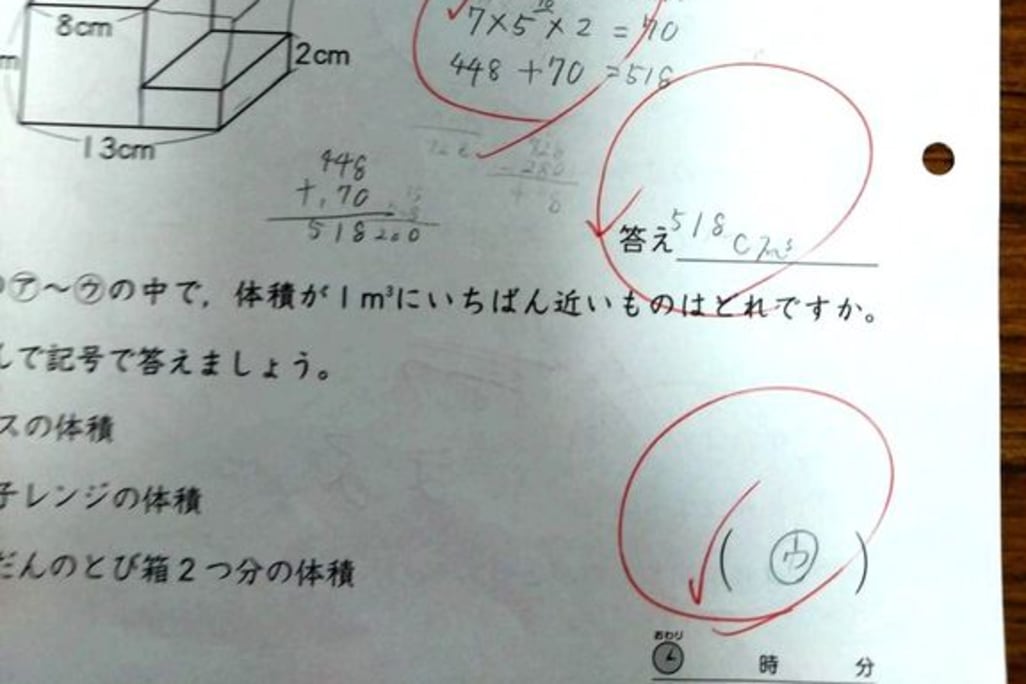 8cm
2cm
m
13cm
7×5×2=70
448+70=518
448
+70
518
答え 518cm³
㋐〜㋒の中で，体積が1m³にいちばん近いものはどれですか。
して記号で答えましょう。
スの体積
子レンジの体積
だんのとび箱2つ分の体積
( ㋒ )
おわり
時 分